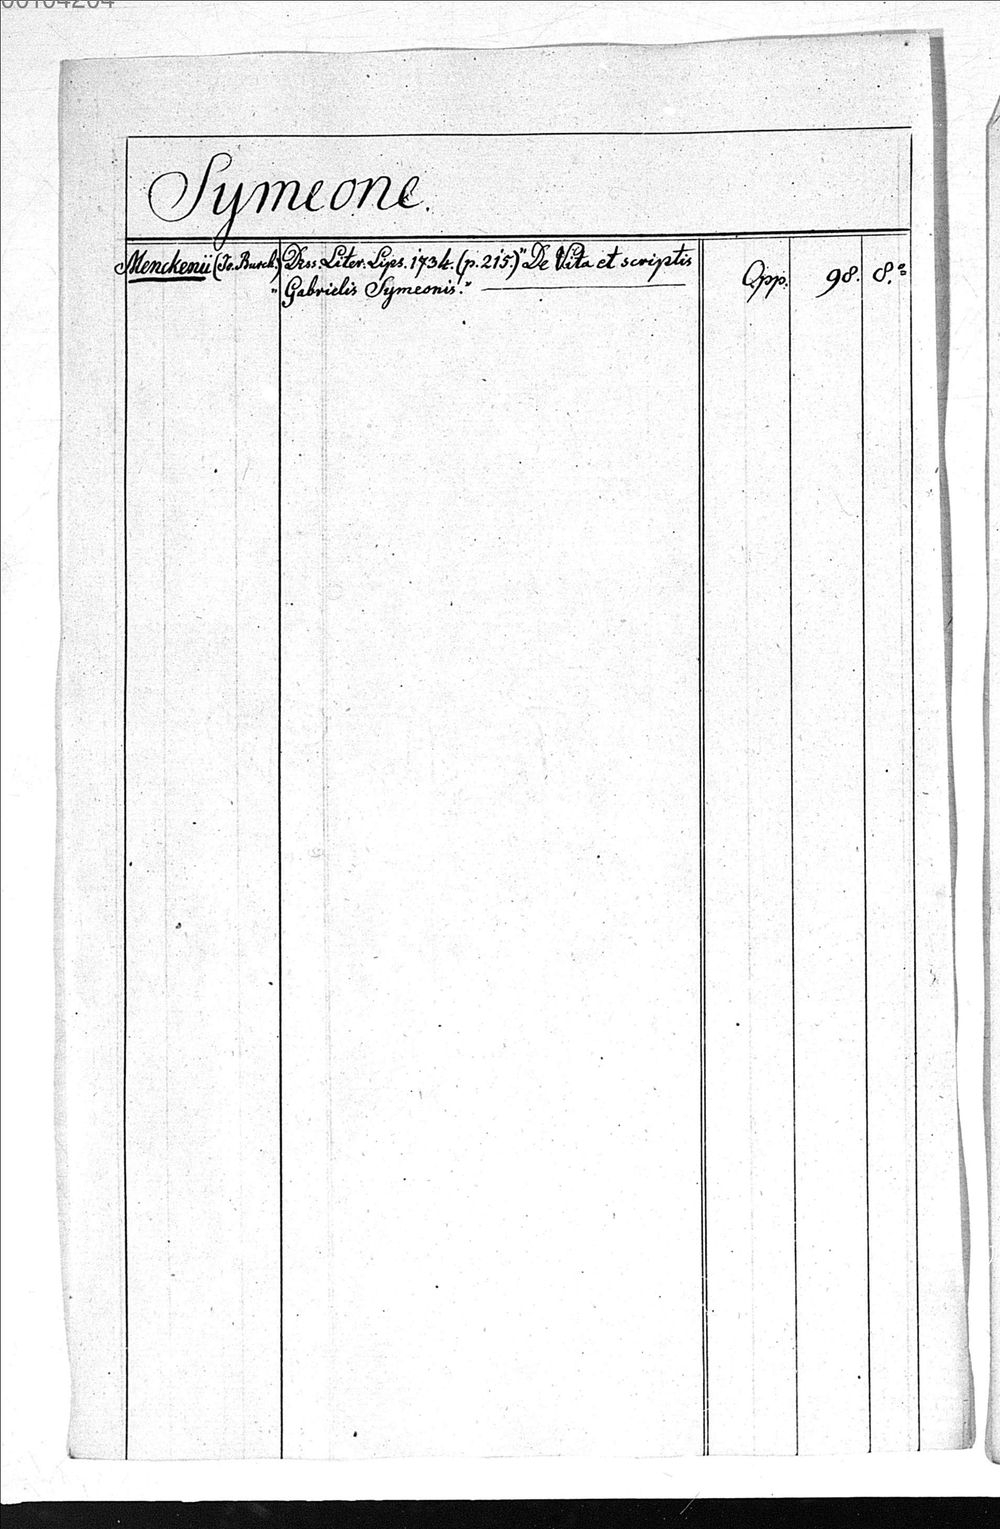 00104204
Symeone.
Menckenii (Jo. Burch.) Diss. Liter. Lips. 1734. (p. 215.) "De Vita et scriptis
" Gabrielis Symeonis." Opp. 98. 8.°